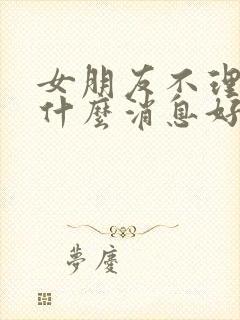 女朋友不理
什麼消息好
夢慶